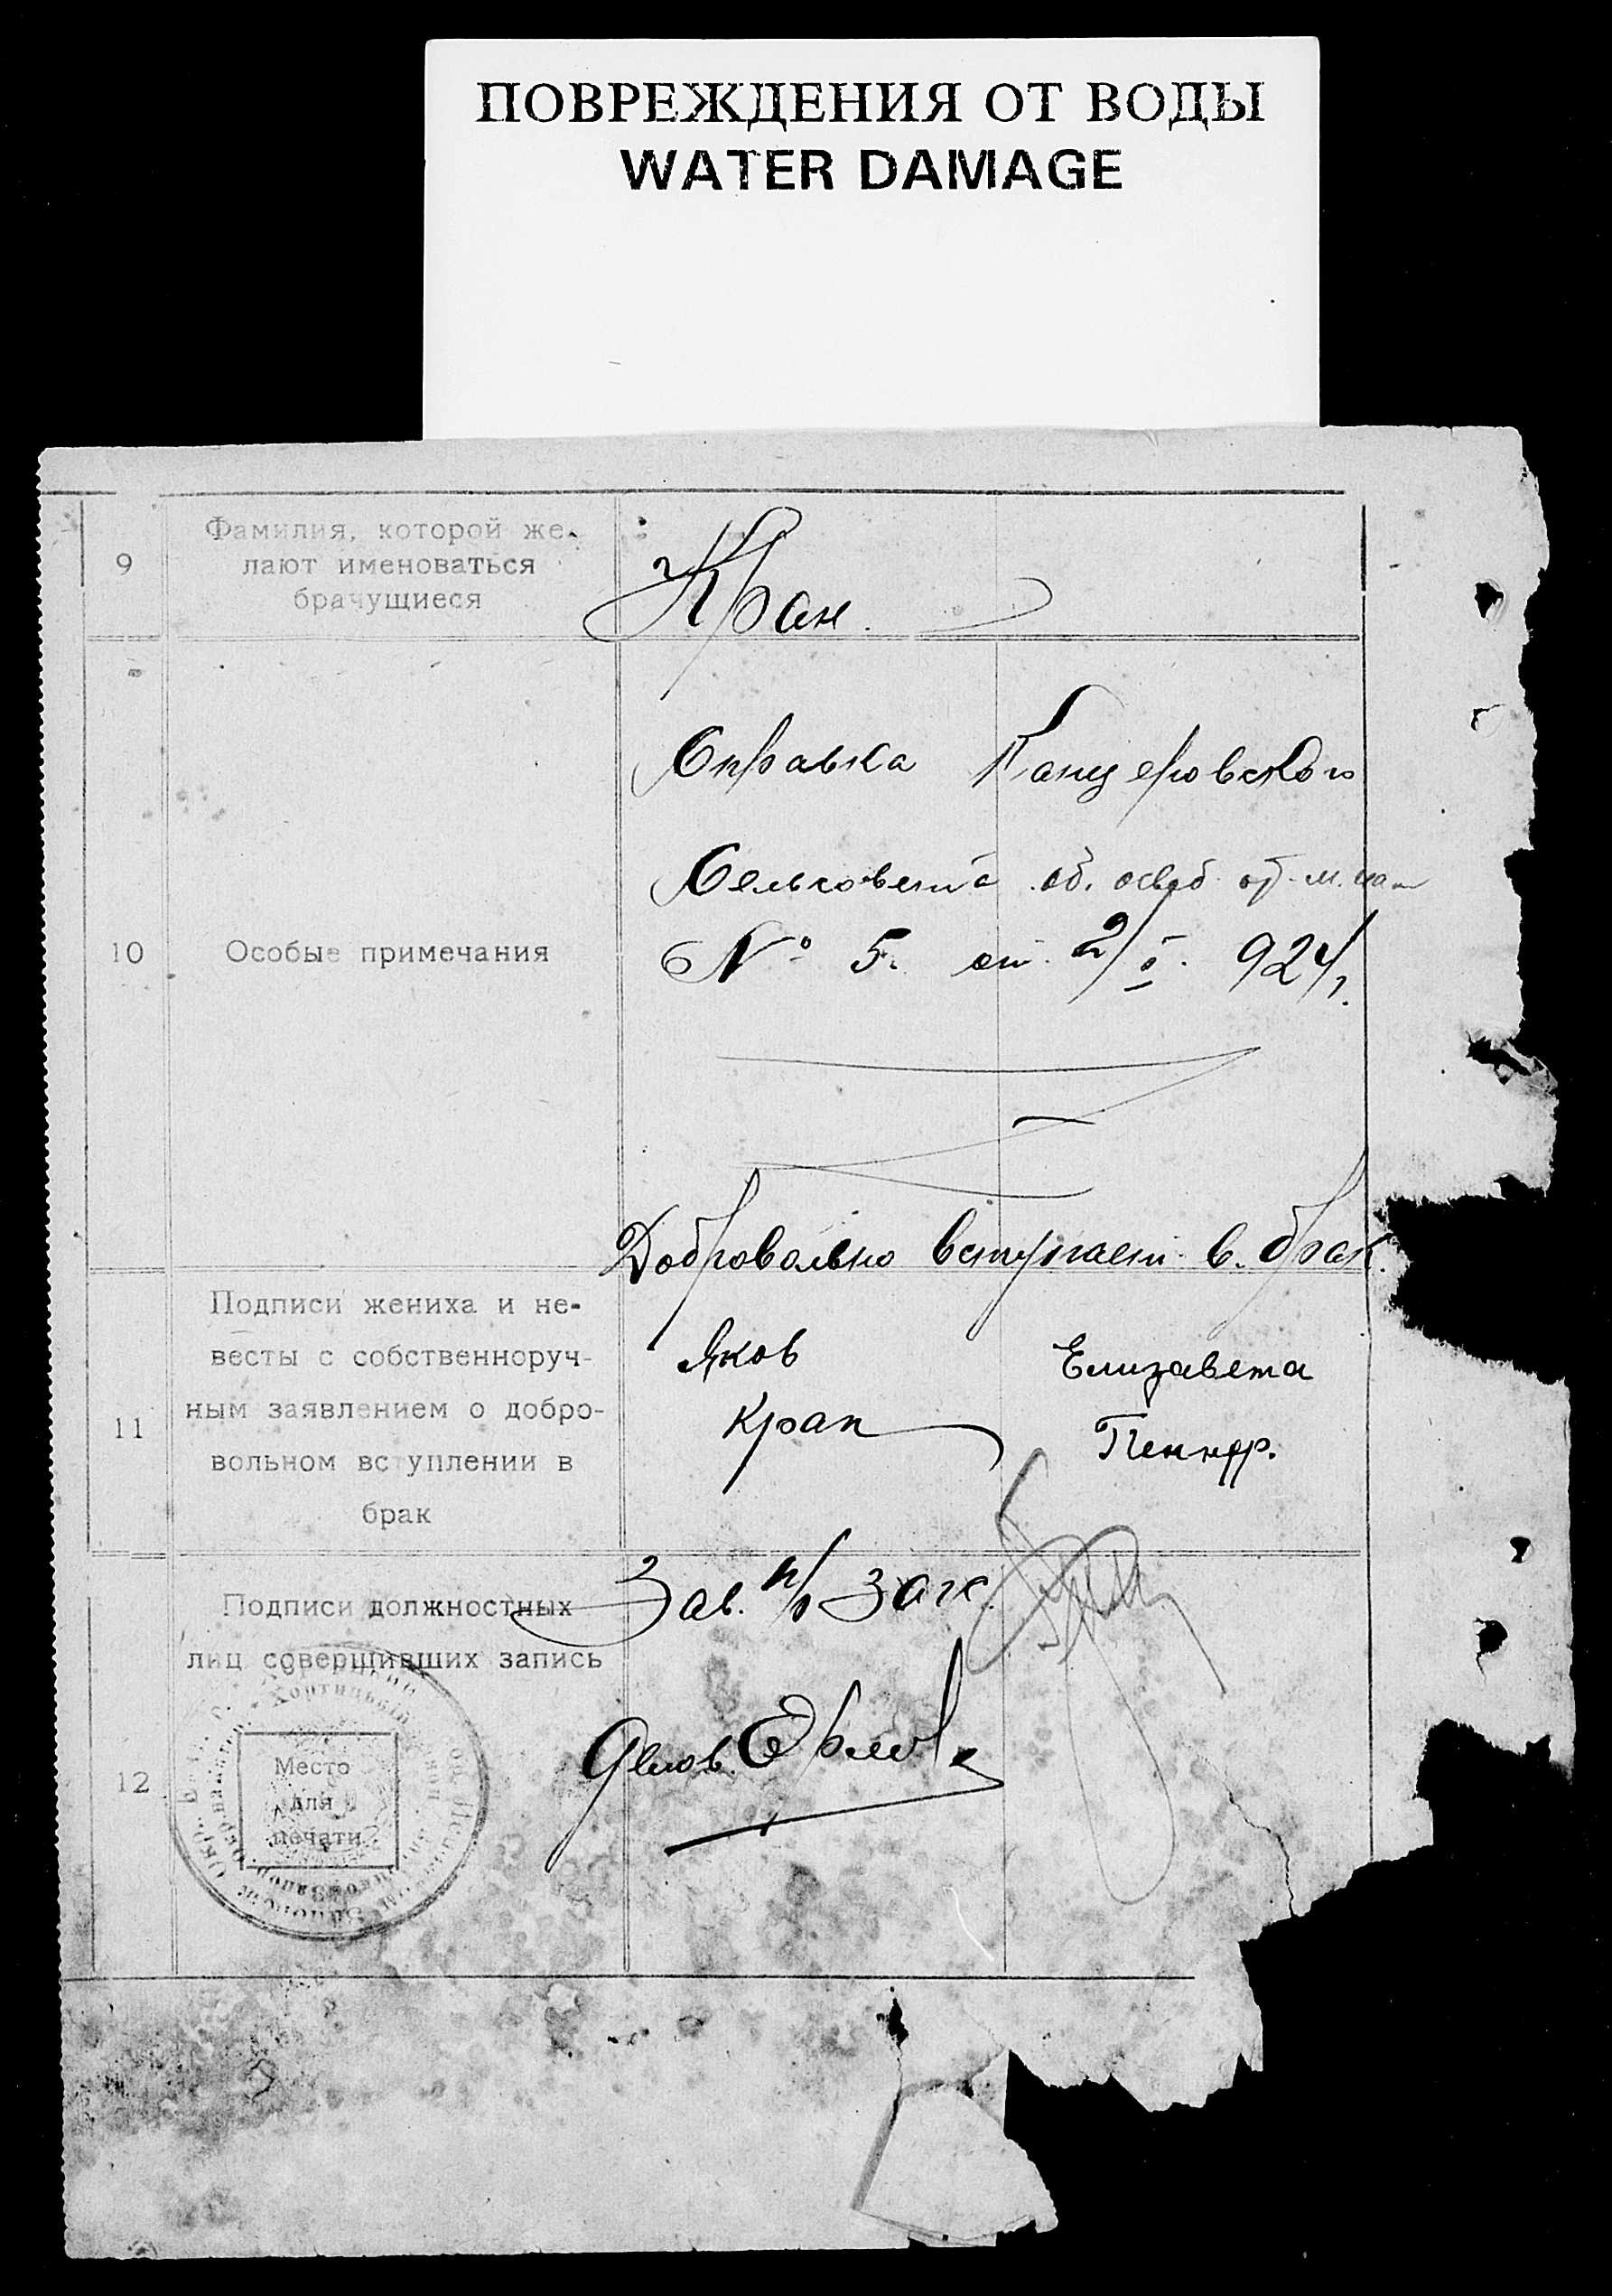 ПОВРЕЖДЕНИЯ ОТ ВОДЫ
WATER DAMAGE
9
Фамилия, которой же-
лают именоваться
брачущиеся
Кран.
10
Особые примечания
Справка Канцеровского
Сельсовета об. освоб. от
№ 5. от. 2/I. 924 г.
Добровольно вступаем в. брак.
11
Подписи жениха и не-
весты с собственноруч-
ным заявлением о добро-
вольном вступлении в
брак
Яков
Кран
Елизавета
Пеннер.
12
Подписи должностных
лиц совершивших запись
Зав. п/о Загс
Делов.
Место
для
печати